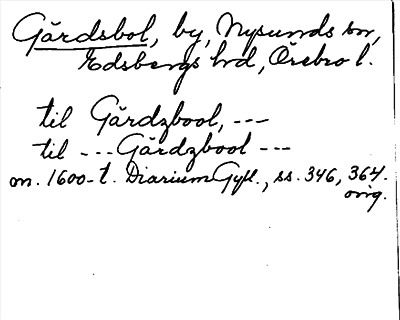 Gårdsbol, by, Nysunds sn,
Edsbergs hd, Örebro l.
til Gårdzbool, ---
til --- Gårdzbool ---
m. 1600-t. Diarium Gyll., ss. 346, 364.
orig.